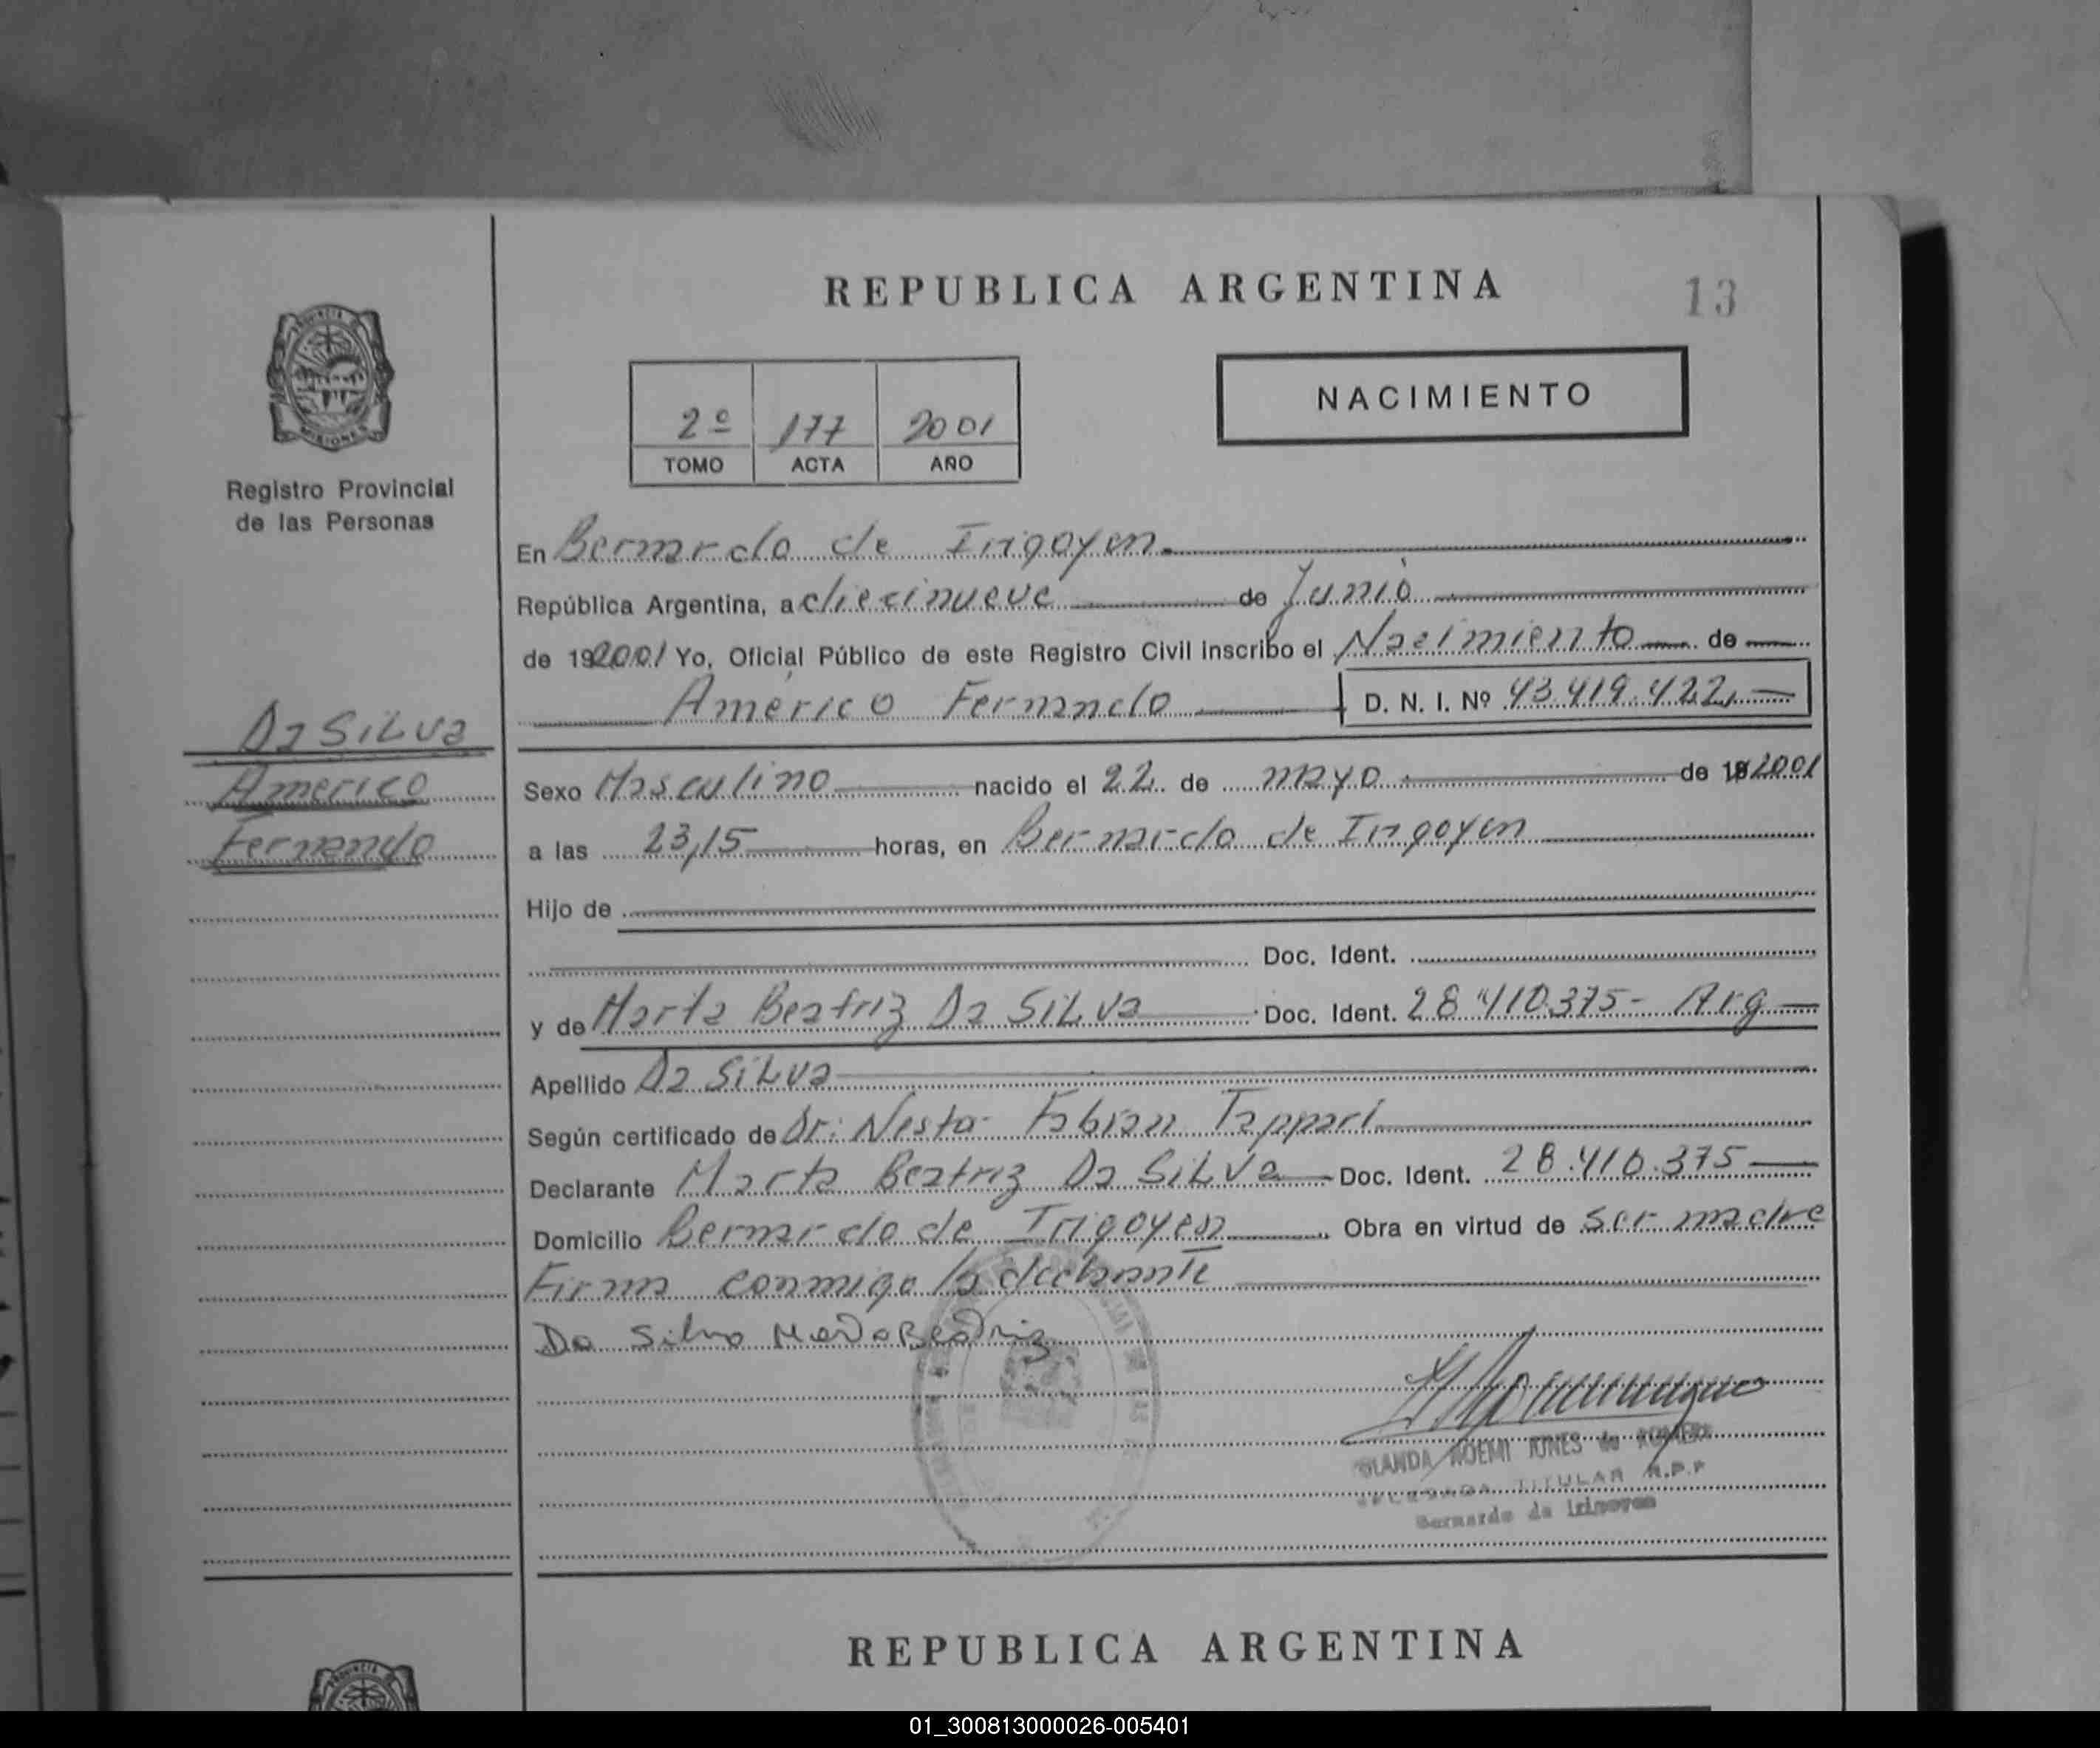 REPUBLICA ARGENTINA
13
PROVINCIA DE
MISIONES
Registro Provincial
de las Personas
2º 177 2001
TOMO ACTA AÑO
NACIMIENTO
En Bernardo de Irigoyen.
República Argentina, a diecinueve de Junio
de 192001 Yo, Oficial Público de este Registro Civil inscribo el Nacimiento de
Américo Fernando D. N. I. Nº 43.419.422
Da SiLva
Americo
Fernando
Sexo Masculino nacido el 22 de mayo de 192001
a las 23,15 horas, en Bernardo de Irigoyen
Hijo de
Doc. Ident.
y de Marta Beatriz Da SiLva Doc. Ident. 28.410.375- Arg
Apellido Da SiLva
Según certificado de Dr: Nestor Fabian Tappari
Declarante Marta Beatriz Da SiLva Doc. Ident. 28.410.375
Domicilio Bernardo de Irigoyen Obra en virtud de ser madre
Firma conmigo la declarante
Da Silva Marta Beatriz
NOEMI JONES de ROMERO
TITULAR R.P.P
Bernardo de Irigoyen
REPUBLICA ARGENTINA
PROVINCIA
01_300813000026-005401